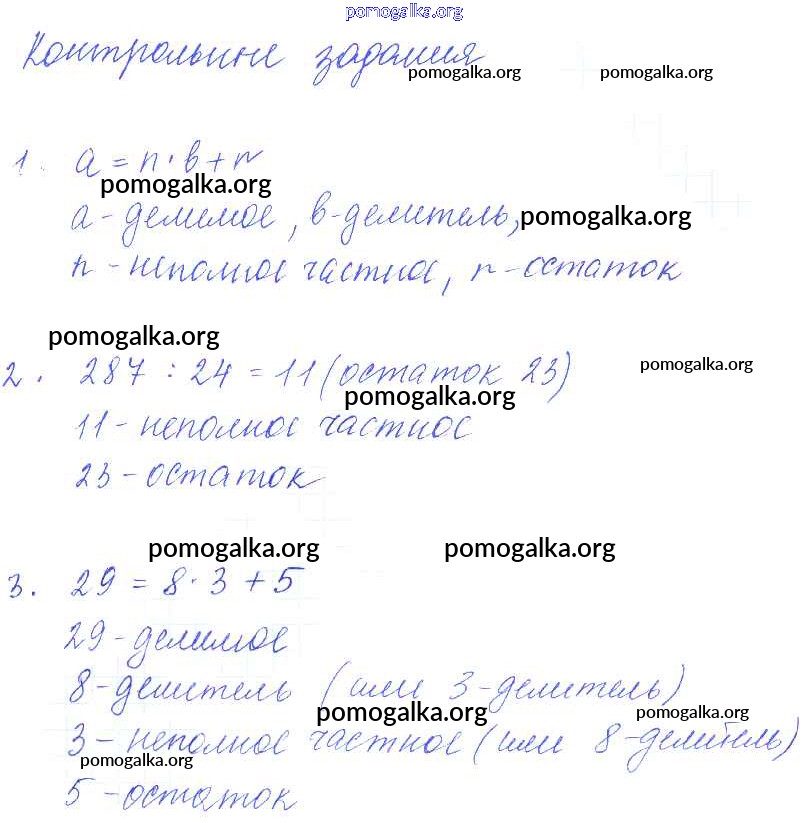 pomogalka.org
Контрольные задания
pomogalka.org pomogalka.org
1. a = n · в + r
pomogalka.org
a - делимое, в - делитель, pomogalka.org
n - неполное частное, r - остаток
pomogalka.org
2. 287 : 24 = 11 (остаток 23) pomogalka.org
pomogalka.org
11 - неполное частное
23 - остаток
pomogalka.org pomogalka.org
3. 29 = 8 · 3 + 5
29 - делимое
8 - делитель (или 3 - делитель)
pomogalka.org pomogalka.org
3 - неполное частное (или 8 - делитель)
pomogalka.org
5 - остаток